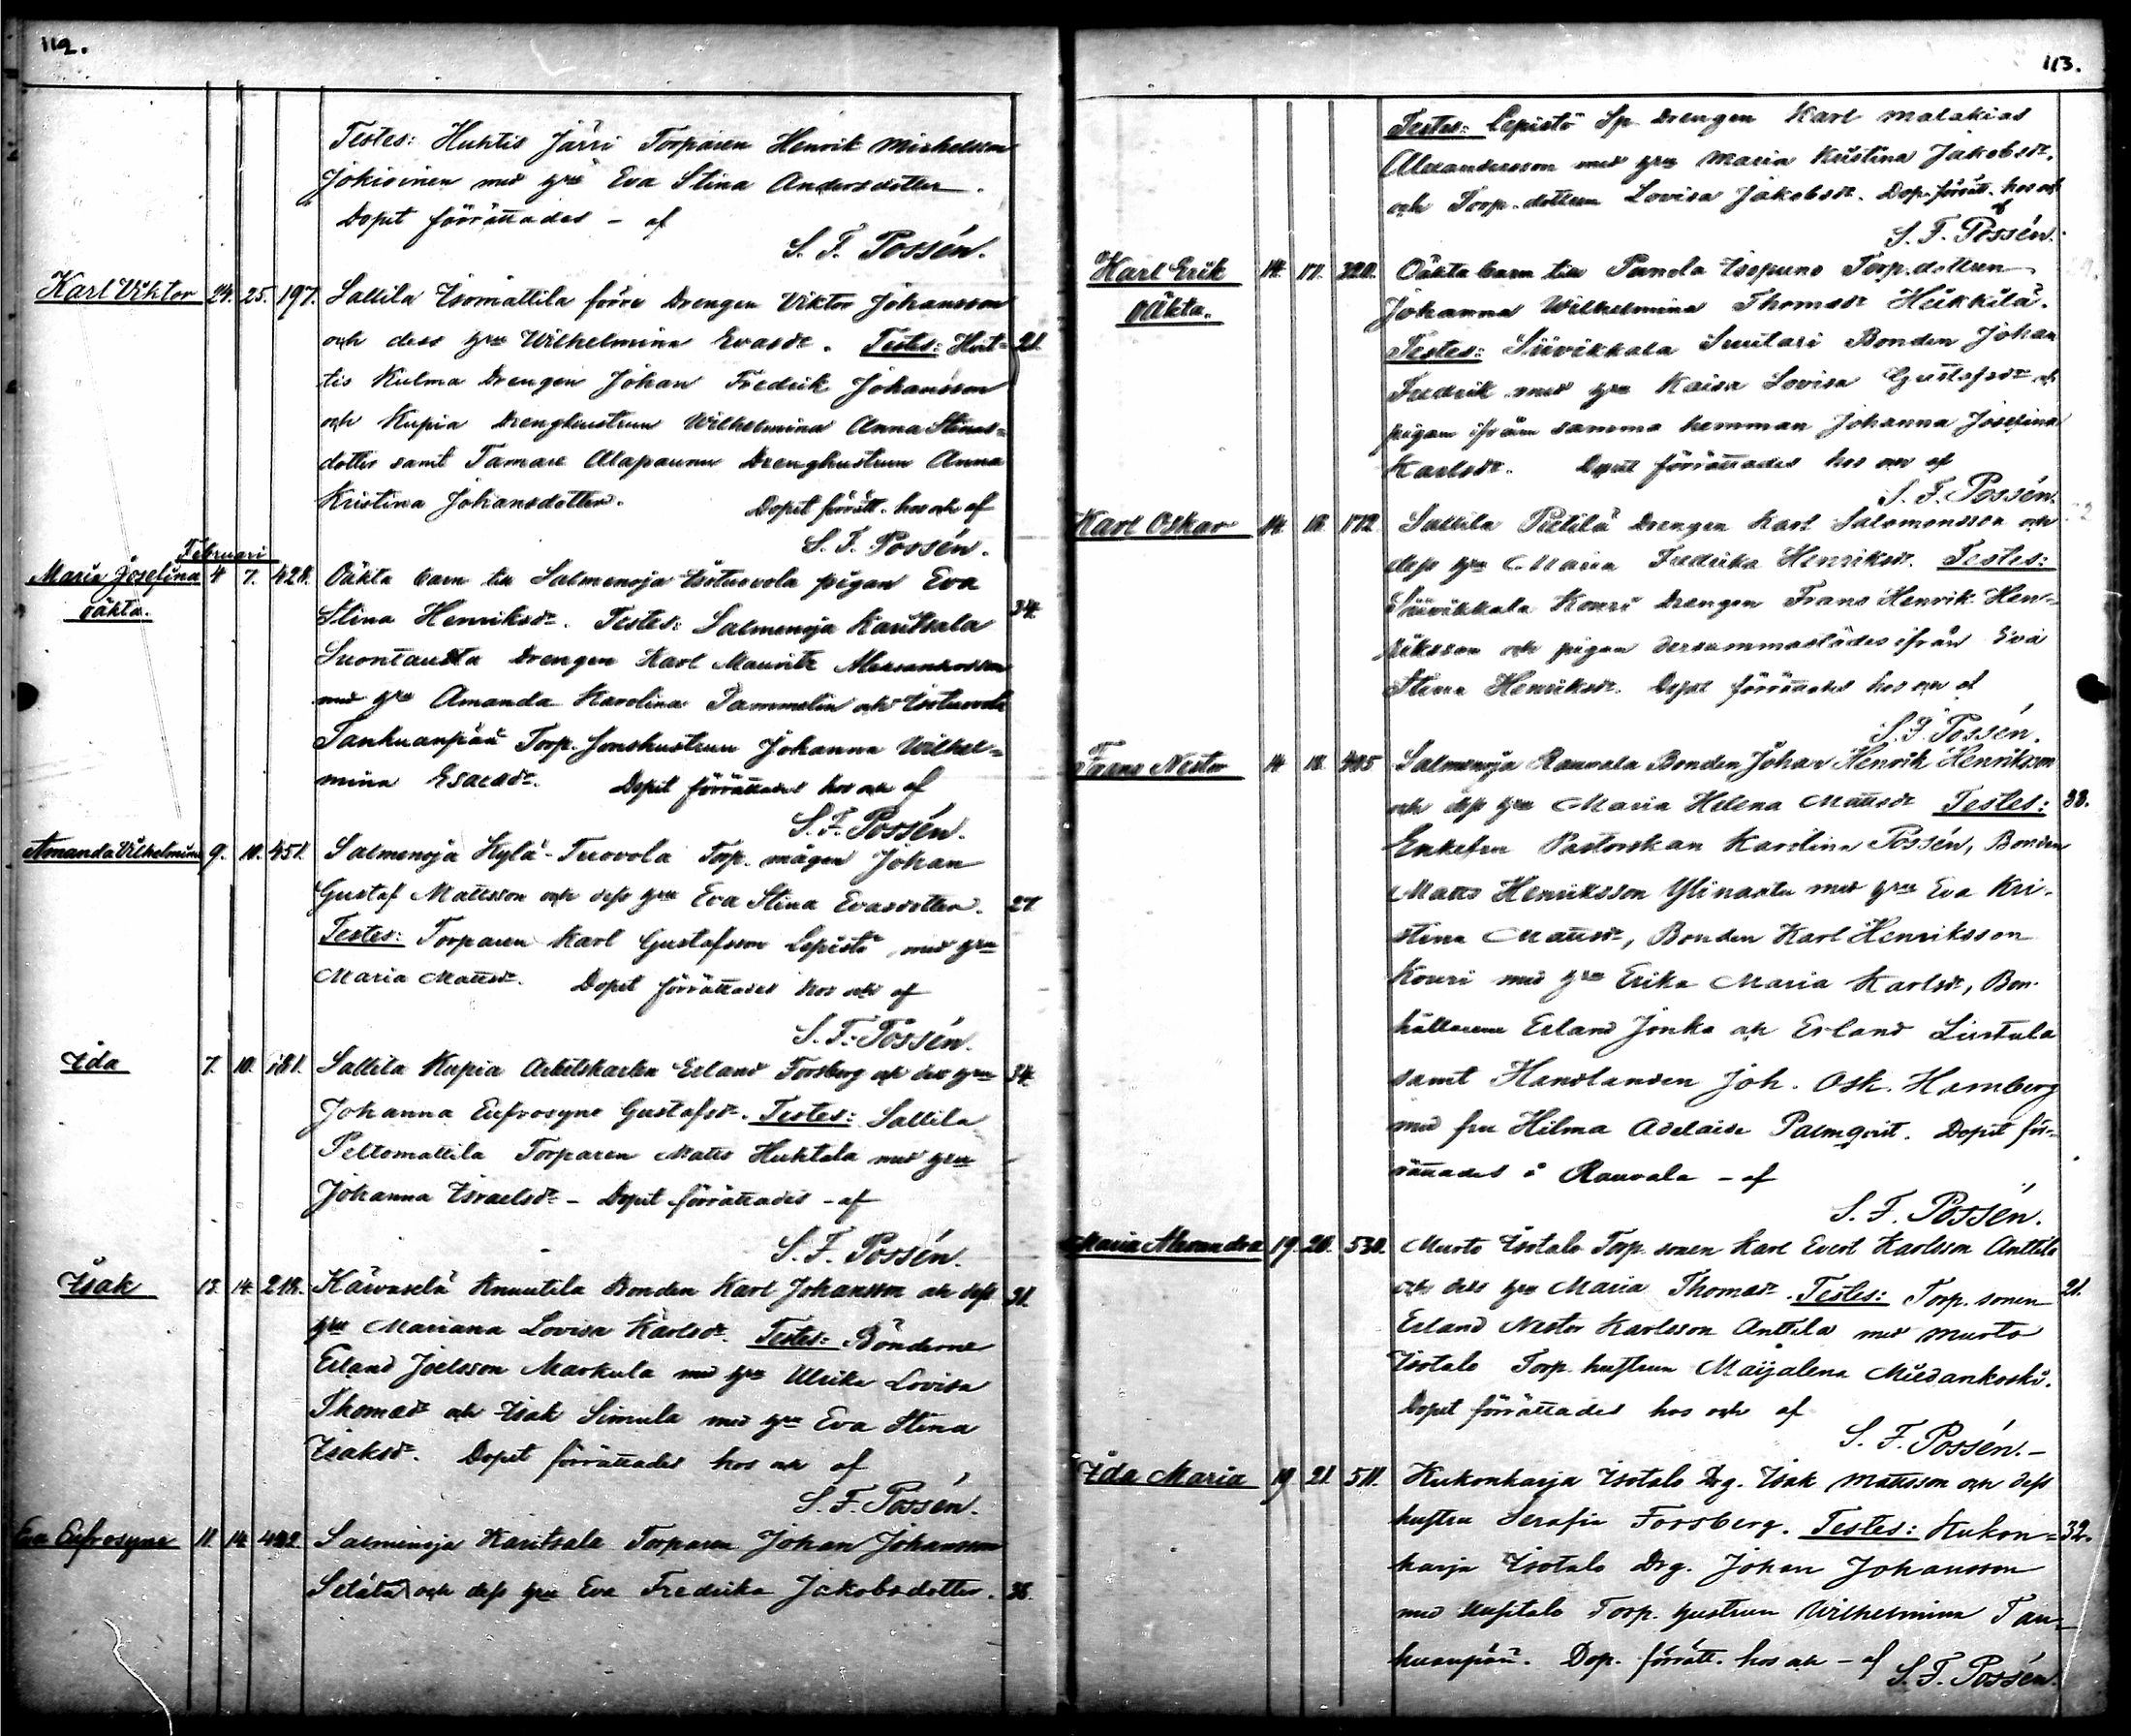 112.
Testes: Huhtis Järri Torparen Henrik Mickelsson
Jokisinen med hru Eva Stina Andersdotter.
Dopet förrättades - af
S. F. Possén.
Karl Viktor 24. 25. 197. Sallila Isomattila förre Drengen Viktor Johansson
och dess hru Wilhelmina Evasdr. Testes: Huh- 21.
tis Kulma Drengen Johan Fredrik Johansson
och Kupia Drenghustrun Wilhelmina Anna Stinas-
dotter samt Tamare Alapaunu Drenghustrun Anna
Kristina Johansdotter. Dopet förrätt. hos och af
S. F. Possén.
Februari
Maria Josefina 4 7. 428. Oäkta barn till Salmenoja Isotuovola pigan Eva
oäkta.
Stina Henriksdr. Testes: Salmenoja Karitsala 34.
Suontausta Drengen Karl Mauritz Alexandersson
med hru Amanda Karolina Tammelin och Isotuovola
Tankuanpää Torp. sonshustrun Johanna Wilhel-
mina Esaiadr. Dopet förrättades hos och af
S. F. Possén.
Amanda Vilhelmina 9. 10. 451. Salmenoja Kylä-Tuovola Torp. mågen Johan
Gustaf Mattsson och dess hru Eva Stina Evasdotter. 27.
Testes: Torparen Karl Gustafsson Lepistö med hru
Maria Mattsdr. Dopet förrättades hos och af
S. F. Possén.
Ida 7. 10. 181. Sallila Kupia Arbetskarlen Erland Forsberg och dess hru 34.
Johanna Eufrosyne Gustafsdr. Testes: Sallila
Peltomattila Torparen Matts Huhtala med hru
Johanna Israelsdr - Dopet förrättades - af
S. F. Possén.
Isak 13. 14. 218. Käwaselä Knuutila Bonden Karl Johansson och dess 31.
hru Mariana Lovisa Karlsdr. Testes: Bönderne
Erland Joelsson Markula med hru Ulrika Lovisa
Thomasdr och Isak Simula med hru Eva Stina
Isaksdr. Dopet förrättades hos och af
S. F. Possén.
Eva Eufrosyne 11. 14. Salmenoja Karitsala Torparen Johan Johansson
Setälä och dess hru Eva Fredrika Jakobsdotter. 36.
113.
Testes: Lepistö Sp. Drengen Karl Malakias
Alexandersson med hru Maria Kristina Jakobsdr.
och Torp. dottern Lovisa Jakobsdr. Dop. förrätt. hos och
af
S. F. Possén.
Karl Erik 14. 17. 320. Oäkta barn till Panela Isopuno Torp. dottren
oäkta.
Johanna Wilhelmina Thomasdr Heikkilä.
Testes: Siivikkala Suutari Bonden Johan
Fredrik med hru Kaisa Lovisa Gustafsdr och
pigan ifrån samma hemman Johanna Josefina
Karlsdr. Dopet förrättades hos och af
S. F. Possén.
Karl Oskar 14. 18. 172. Sallila Pietilä Drengen Karl Salomonsson och
dess hru Maria Fredrika Henriksdr. Testes:
Siivikkala Kouri Drengen Frans Henrik Hen-
riksson och pigan dersammastädes ifrån Eva
Stina Henriksdr. Dopet förrättades hos och af
S. F. Possén.
Frans Nestor 14. 18. 405. Salmenoja Rauvala Bonden Johan Henrik Henriksson
och dess hru Maria Helena Mattsdr Testes: 33.
Enkefru Pastorskan Karolina Possén, Bonden
Matts Henriksson Ylinaata med hru Eva Kri-
stina Mattsdr, Bonden Karl Henriksson
Kouri med hru Erika Maria Karlsdr, Bon-
Erland Jonka och Erland Liutula
samt Handlanden Joh. Osk. Hamberg
med fru Hilma Adelaide Palmqvist. Dopet för-
rättades i Rauvala - af
S. F. Possén.
Maria Alexandra 19. 20. 530. Murto Isotalo Torp. sonen Karl Evert Karlsson Anttila
och dess hru Maria Thomasdr. Testes: Torp. sonen 21.
Erland Nestor Karlsson Anttila med Murto
Isotalo Torp. hustrun Maijalena Miedankoski.
Dopet förrättades hos och af
S. F. Possén.-
Ida Maria 19. 21. 511. Kukonharja Isotalo Drg. Isak Mattsson och dess
hustru Serafia Forsberg. Testes: Kukon- 32.
harja Isotalo Drg. Johan Johansson
med Uusitalo Torp. hustrun Wilhelmina Tan-
kuanpää. Dop. förrätt. hos och - af
S. F. Possén.